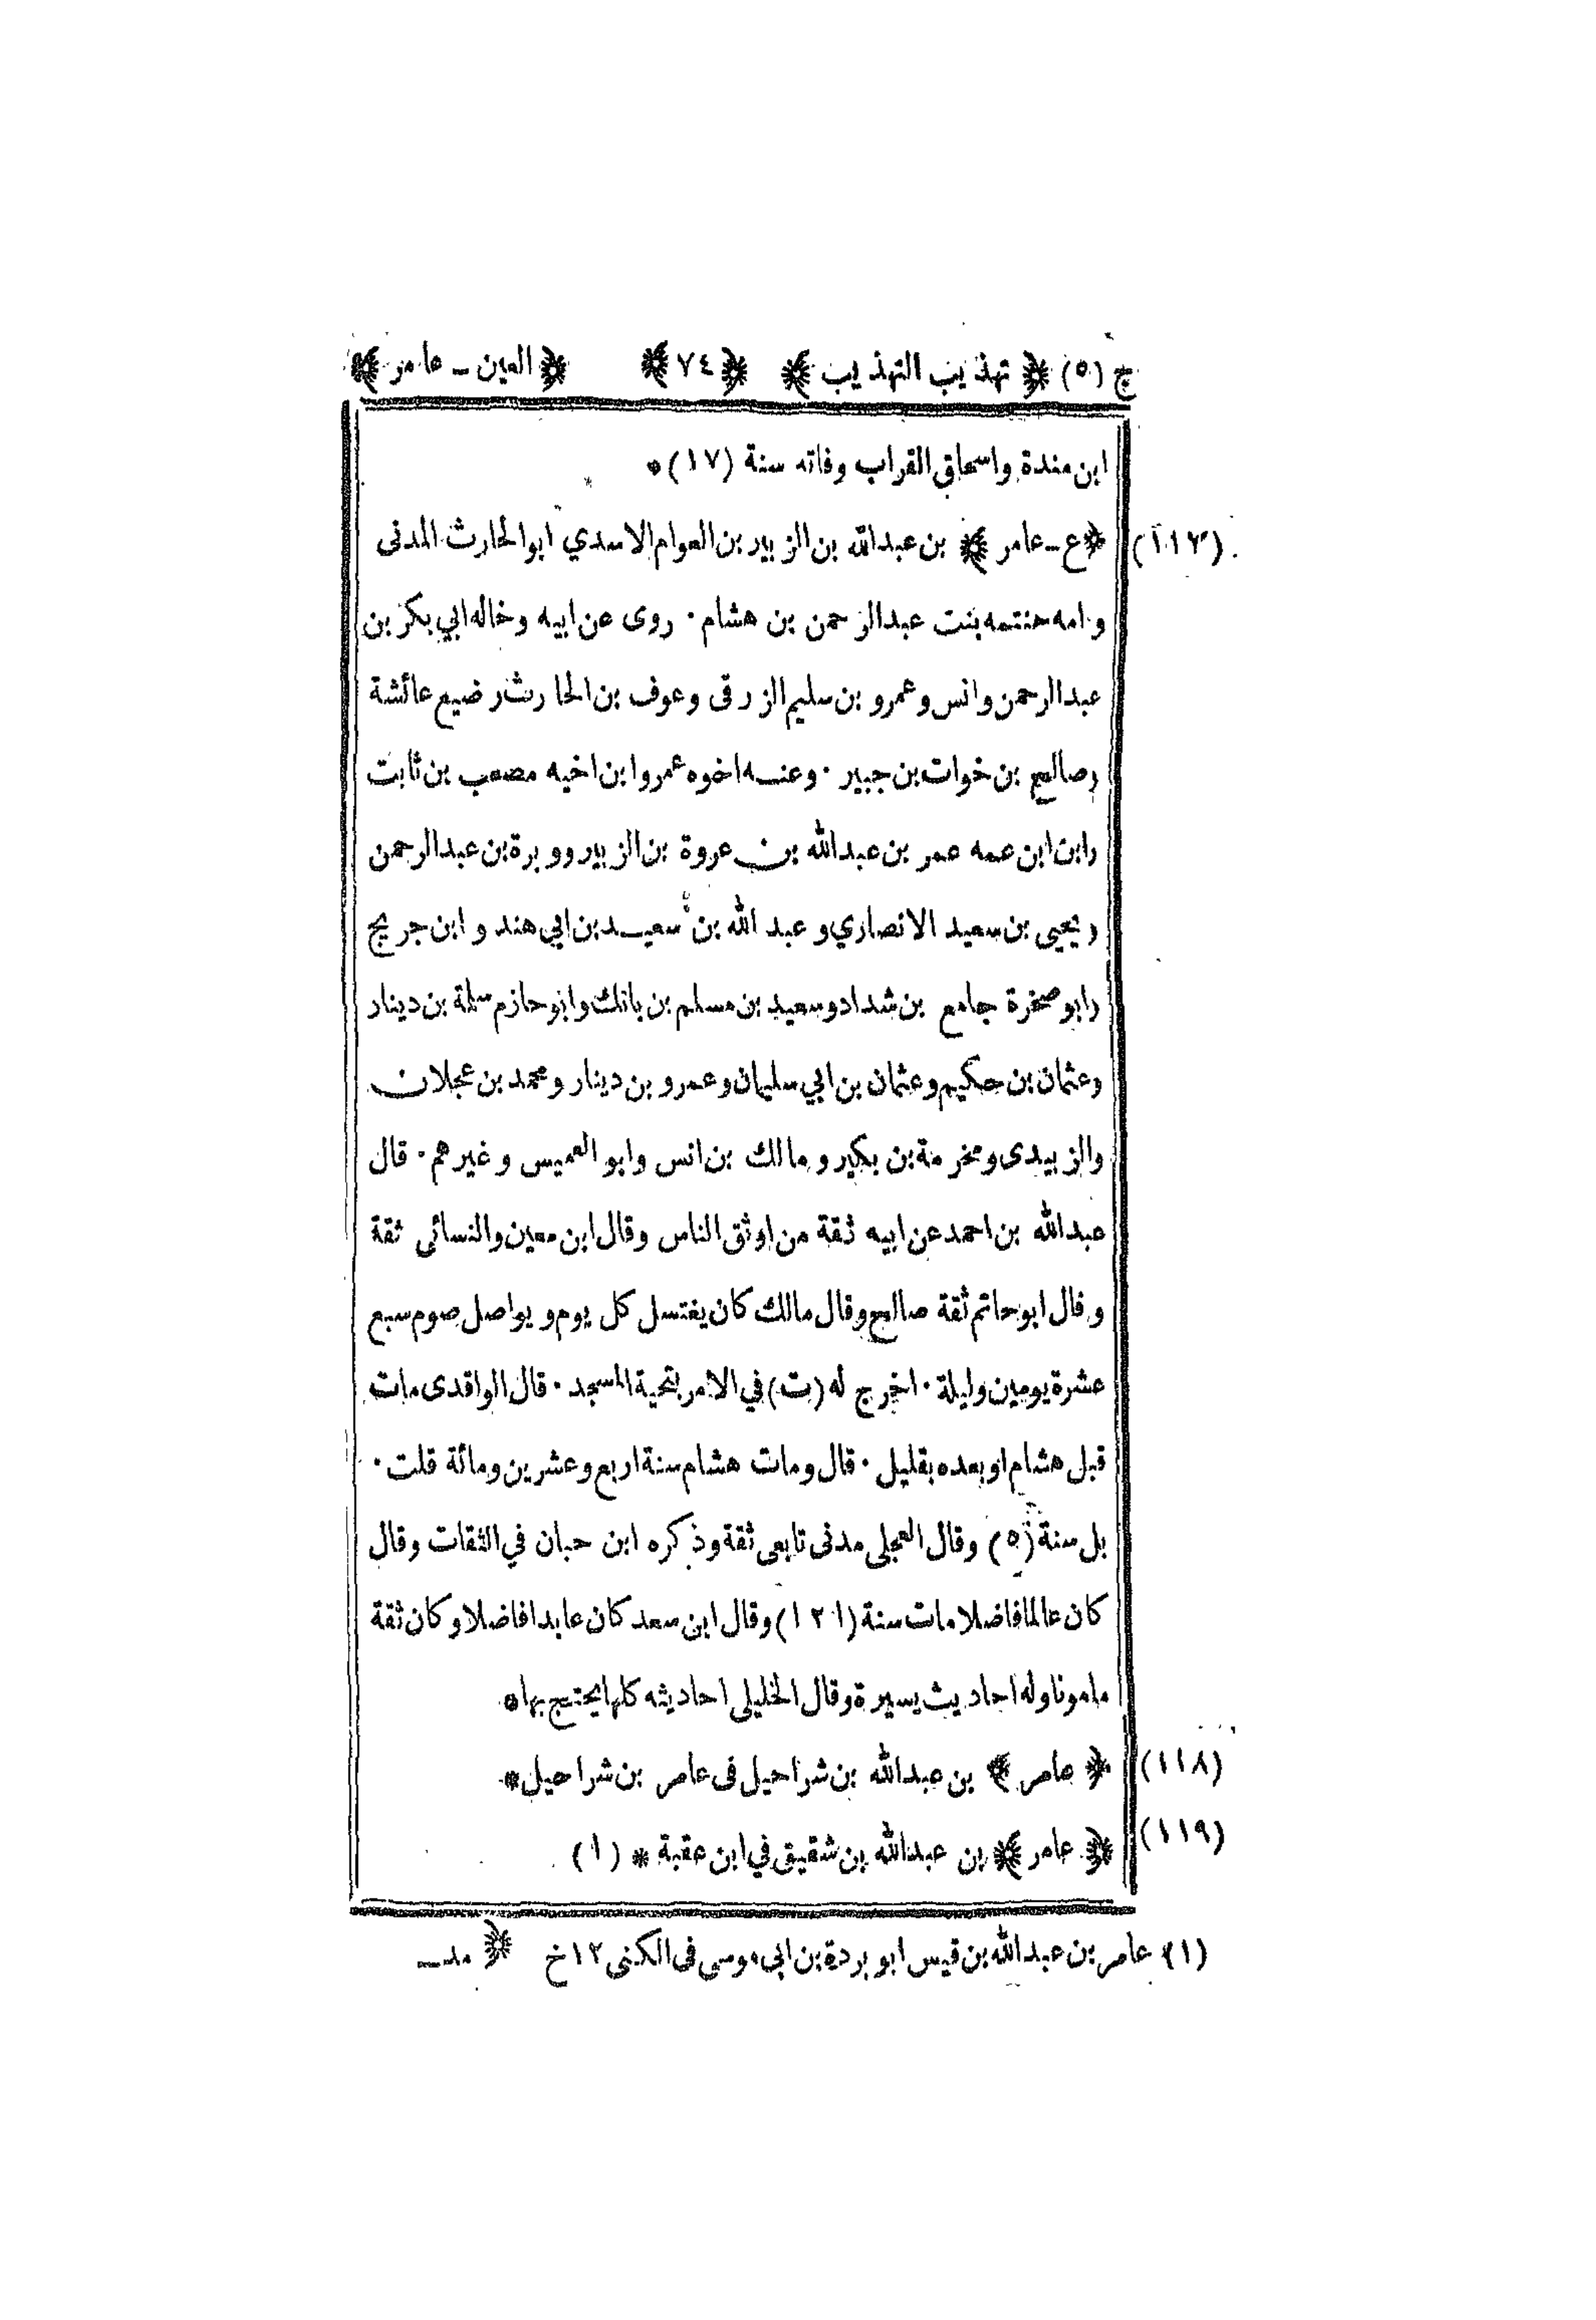 ج (٥) ﴿ تهذيب التهذيب ﴾ ﴿ ٧٤ ﴾ ﴿ العين ـ عامر ﴾
ابن مندة واسحاق القراب وفاته سنة (١٧) *
(١١٧) ﴿ ع ـ عامر ﴾ بن عبدالله بن الزبير بن العوام الاسدي ابوالحارث المدنى
وامه حنتمه بنت عبدالرحمن بن هشام . روى عن ابيه وخاله ابي بكر بن
عبدالرحمن وانس وعمرو بن سليم الزرقى وعوف بن الحارث رضيع عائشة
وصالح بن خوات بن جبير . وعنه اخوه عمر وابن اخيه مصعب بن ثابت
وابن ابن عمه عمر بن عبدالله بن عروة بن الزبير ووبرة بن عبدالرحمن
ويحيى بن سعيد الانصاري وعبد الله بن سعيد بن ابي هند وابن جريج
وابو صخرة جامع بن شداد وسعيد بن مسلم بن بانك وابو حازم سلمة بن دينار
وعثمان بن حكيم وعثمان بن ابي سليمان وعمرو بن دينار ومحمد بن عجلان
والزبيدى ومخرمة بن بكير ومالك بن انس وابو العميس وغيرهم . قال
عبدالله بن احمد عن ابيه ثقة من اوثق الناس وقال ابن معين والنسائى ثقة
وقال ابو حاتم ثقة صالح وقال مالك كان يغتسل كل يوم ويواصل صوم سبع
عشرة يومين وليلة . اخرج له (ت) في الامر بتحية المسجد . قال الواقدى مات
قبل هشام او بعده بقليل . قال ومات هشام سنة اربع وعشرين ومائة قلت .
بل سنة (٥) وقال العجلى مدنى تابعى ثقة وذكره ابن حبان في الثقات وقال
كان عالما فاضلا مات سنة (١٢١) وقال ابن سعد كان عابدا فاضلا وكان ثقة
مامونا وله احاديث يسيرة وقال الخليلى احاديثه كلها يحتج بها *
(١١٨) ﴿ عامر ﴾ بن عبدالله بن شراحيل فى عامر بن شراحيل *
(١١٩) ﴿ عامر ﴾ بن عبدالله بن شقيق في ابن عقبة * (١)
(١) عامر بن عبدالله بن قيس ابو بردة بن ابى موسى فى الكنى ١٢ خ ﴿ مد ـ